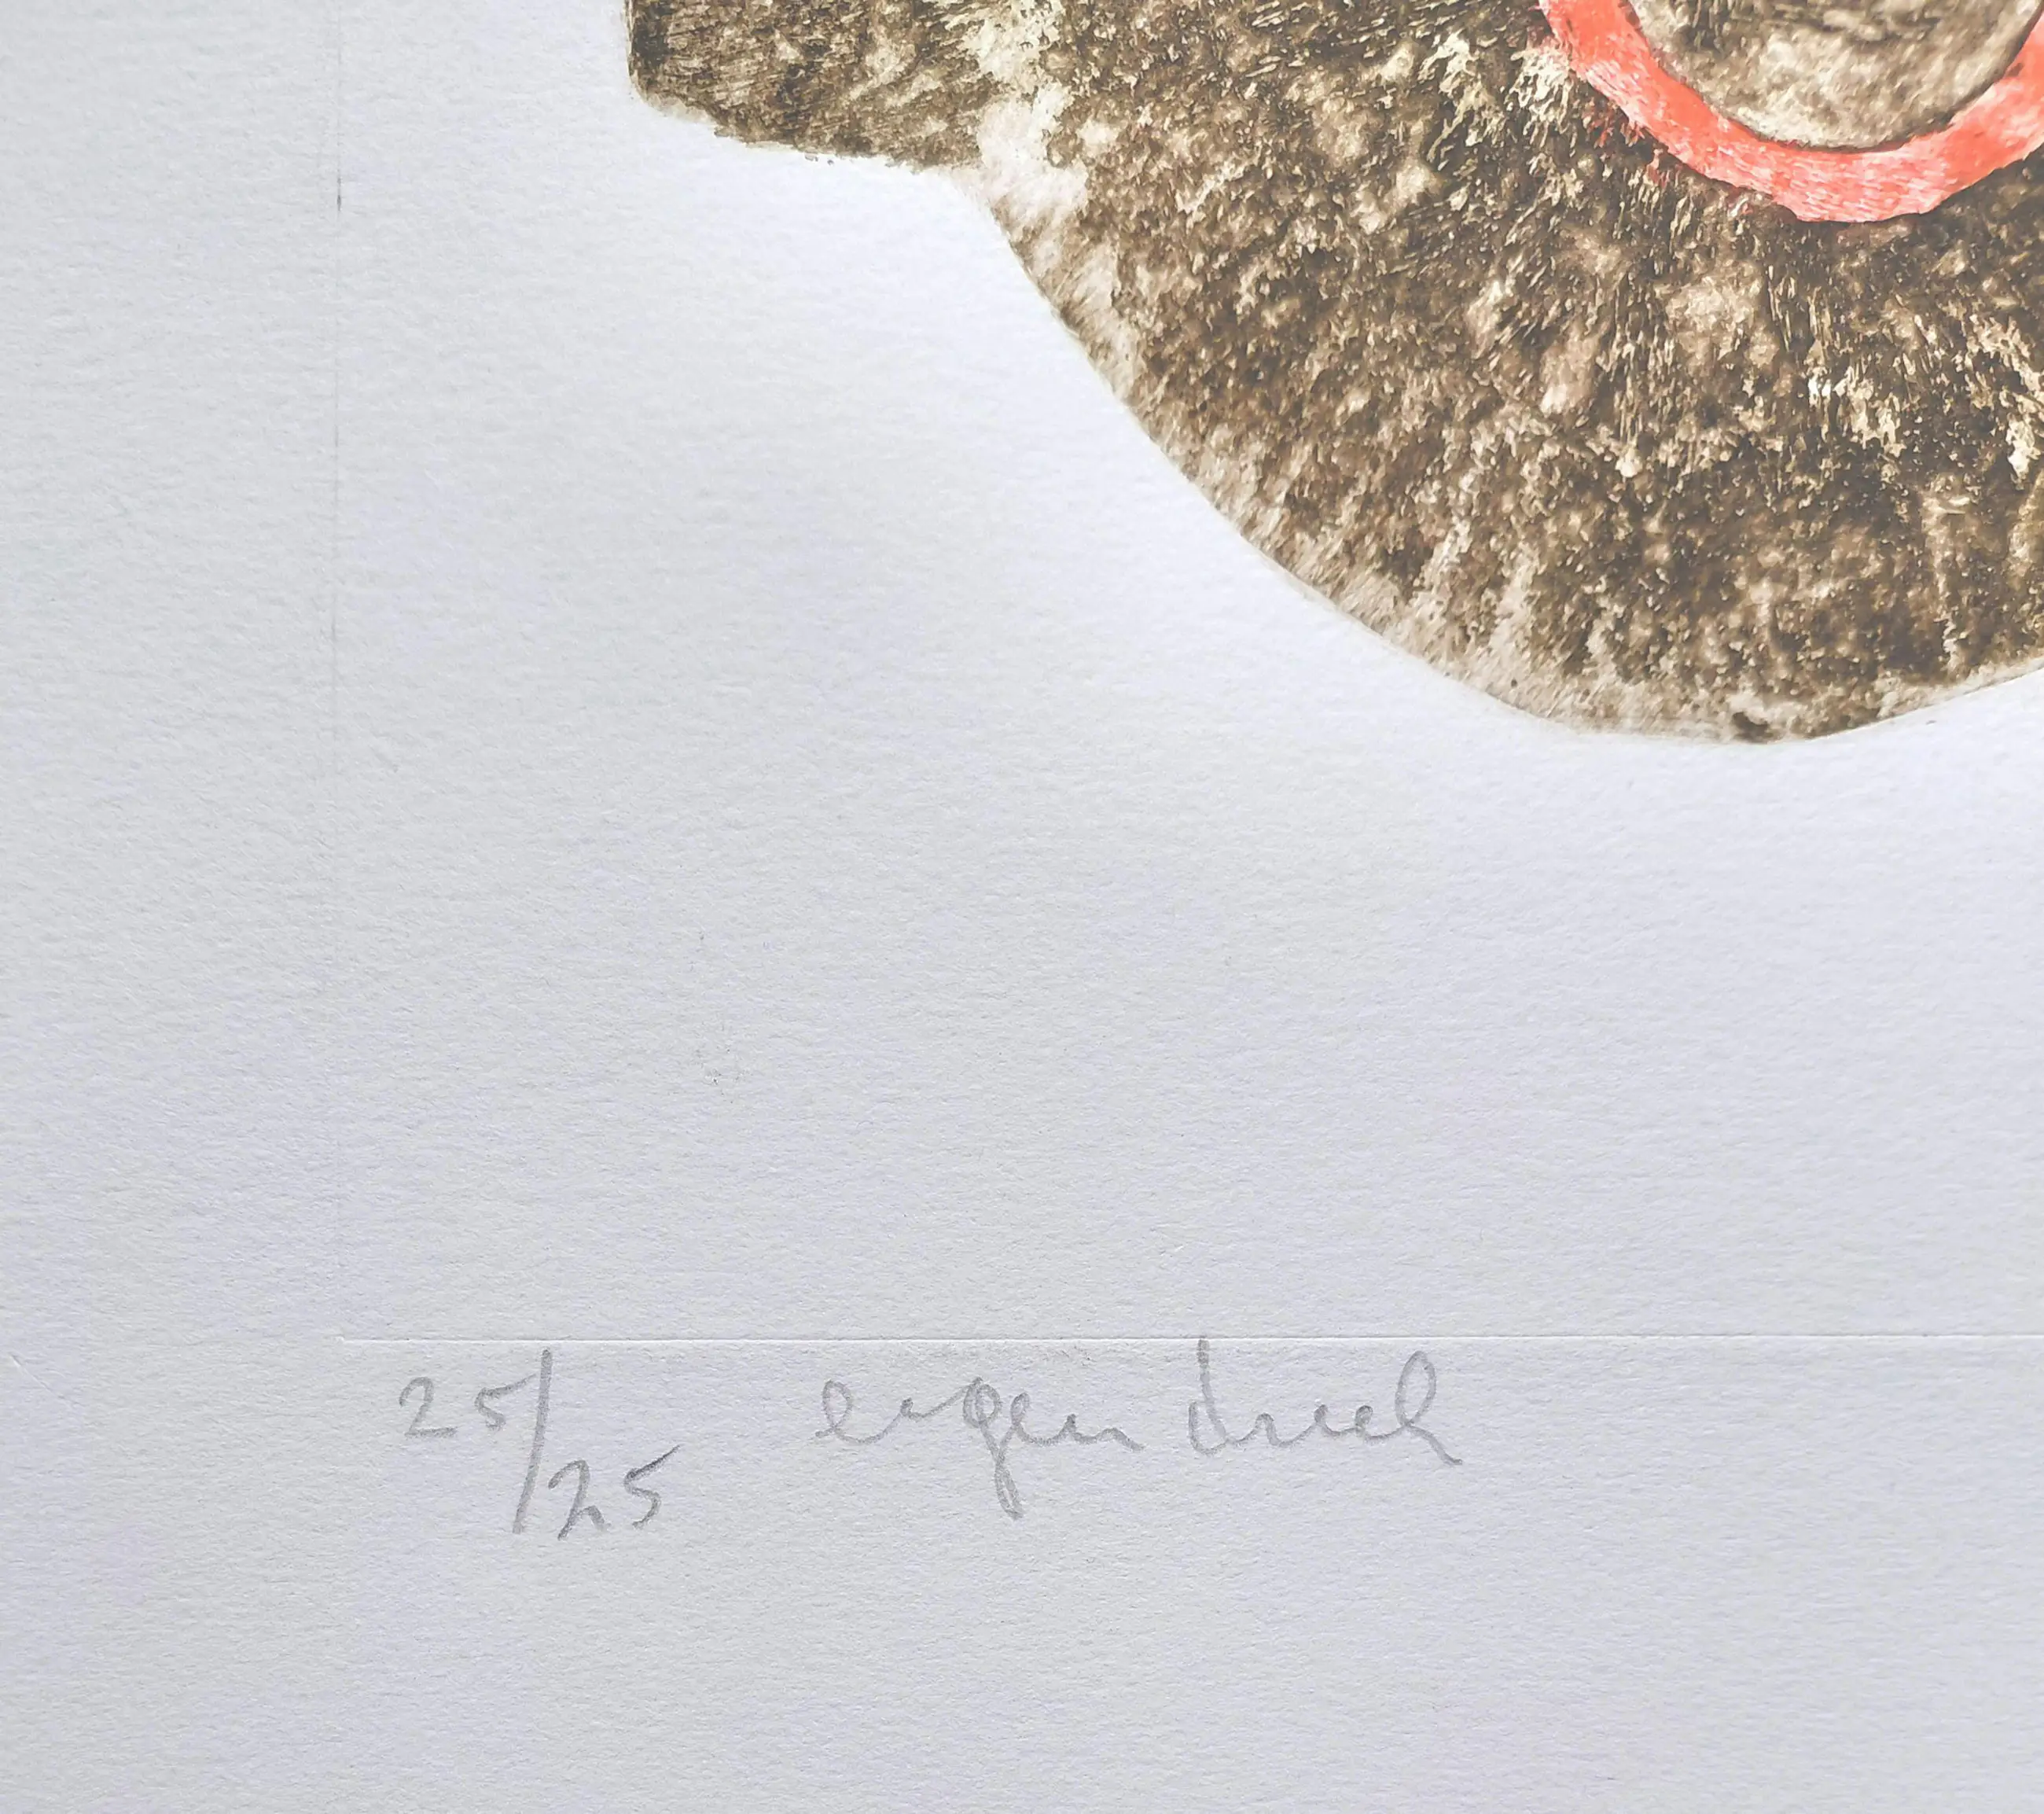 25/25 eigen druk